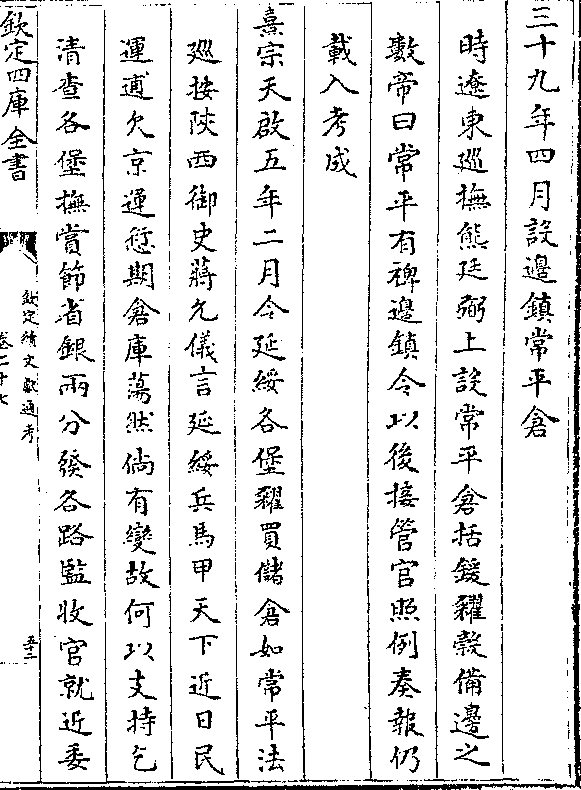 三十九年四月設邊鎮常平倉
時遼東廵撫熊廷弼上設常平倉括鍰糴榖備邊之
數帝曰常平有裨邊鎮令以後接管官照例奏報仍
載入考成
熹宗天啟五年二月令延綏各堡糴買儲倉如常平法
廵按陜西御史蔣允儀言延綏兵馬甲天下近日民
運逋欠京運愆期倉庫蕩然倘有變故何以支持乞
清查各堡撫賞節省銀兩分發各路監收官就近委
欽定四庫全書
欽定續文獻通考
卷二十七
五十二